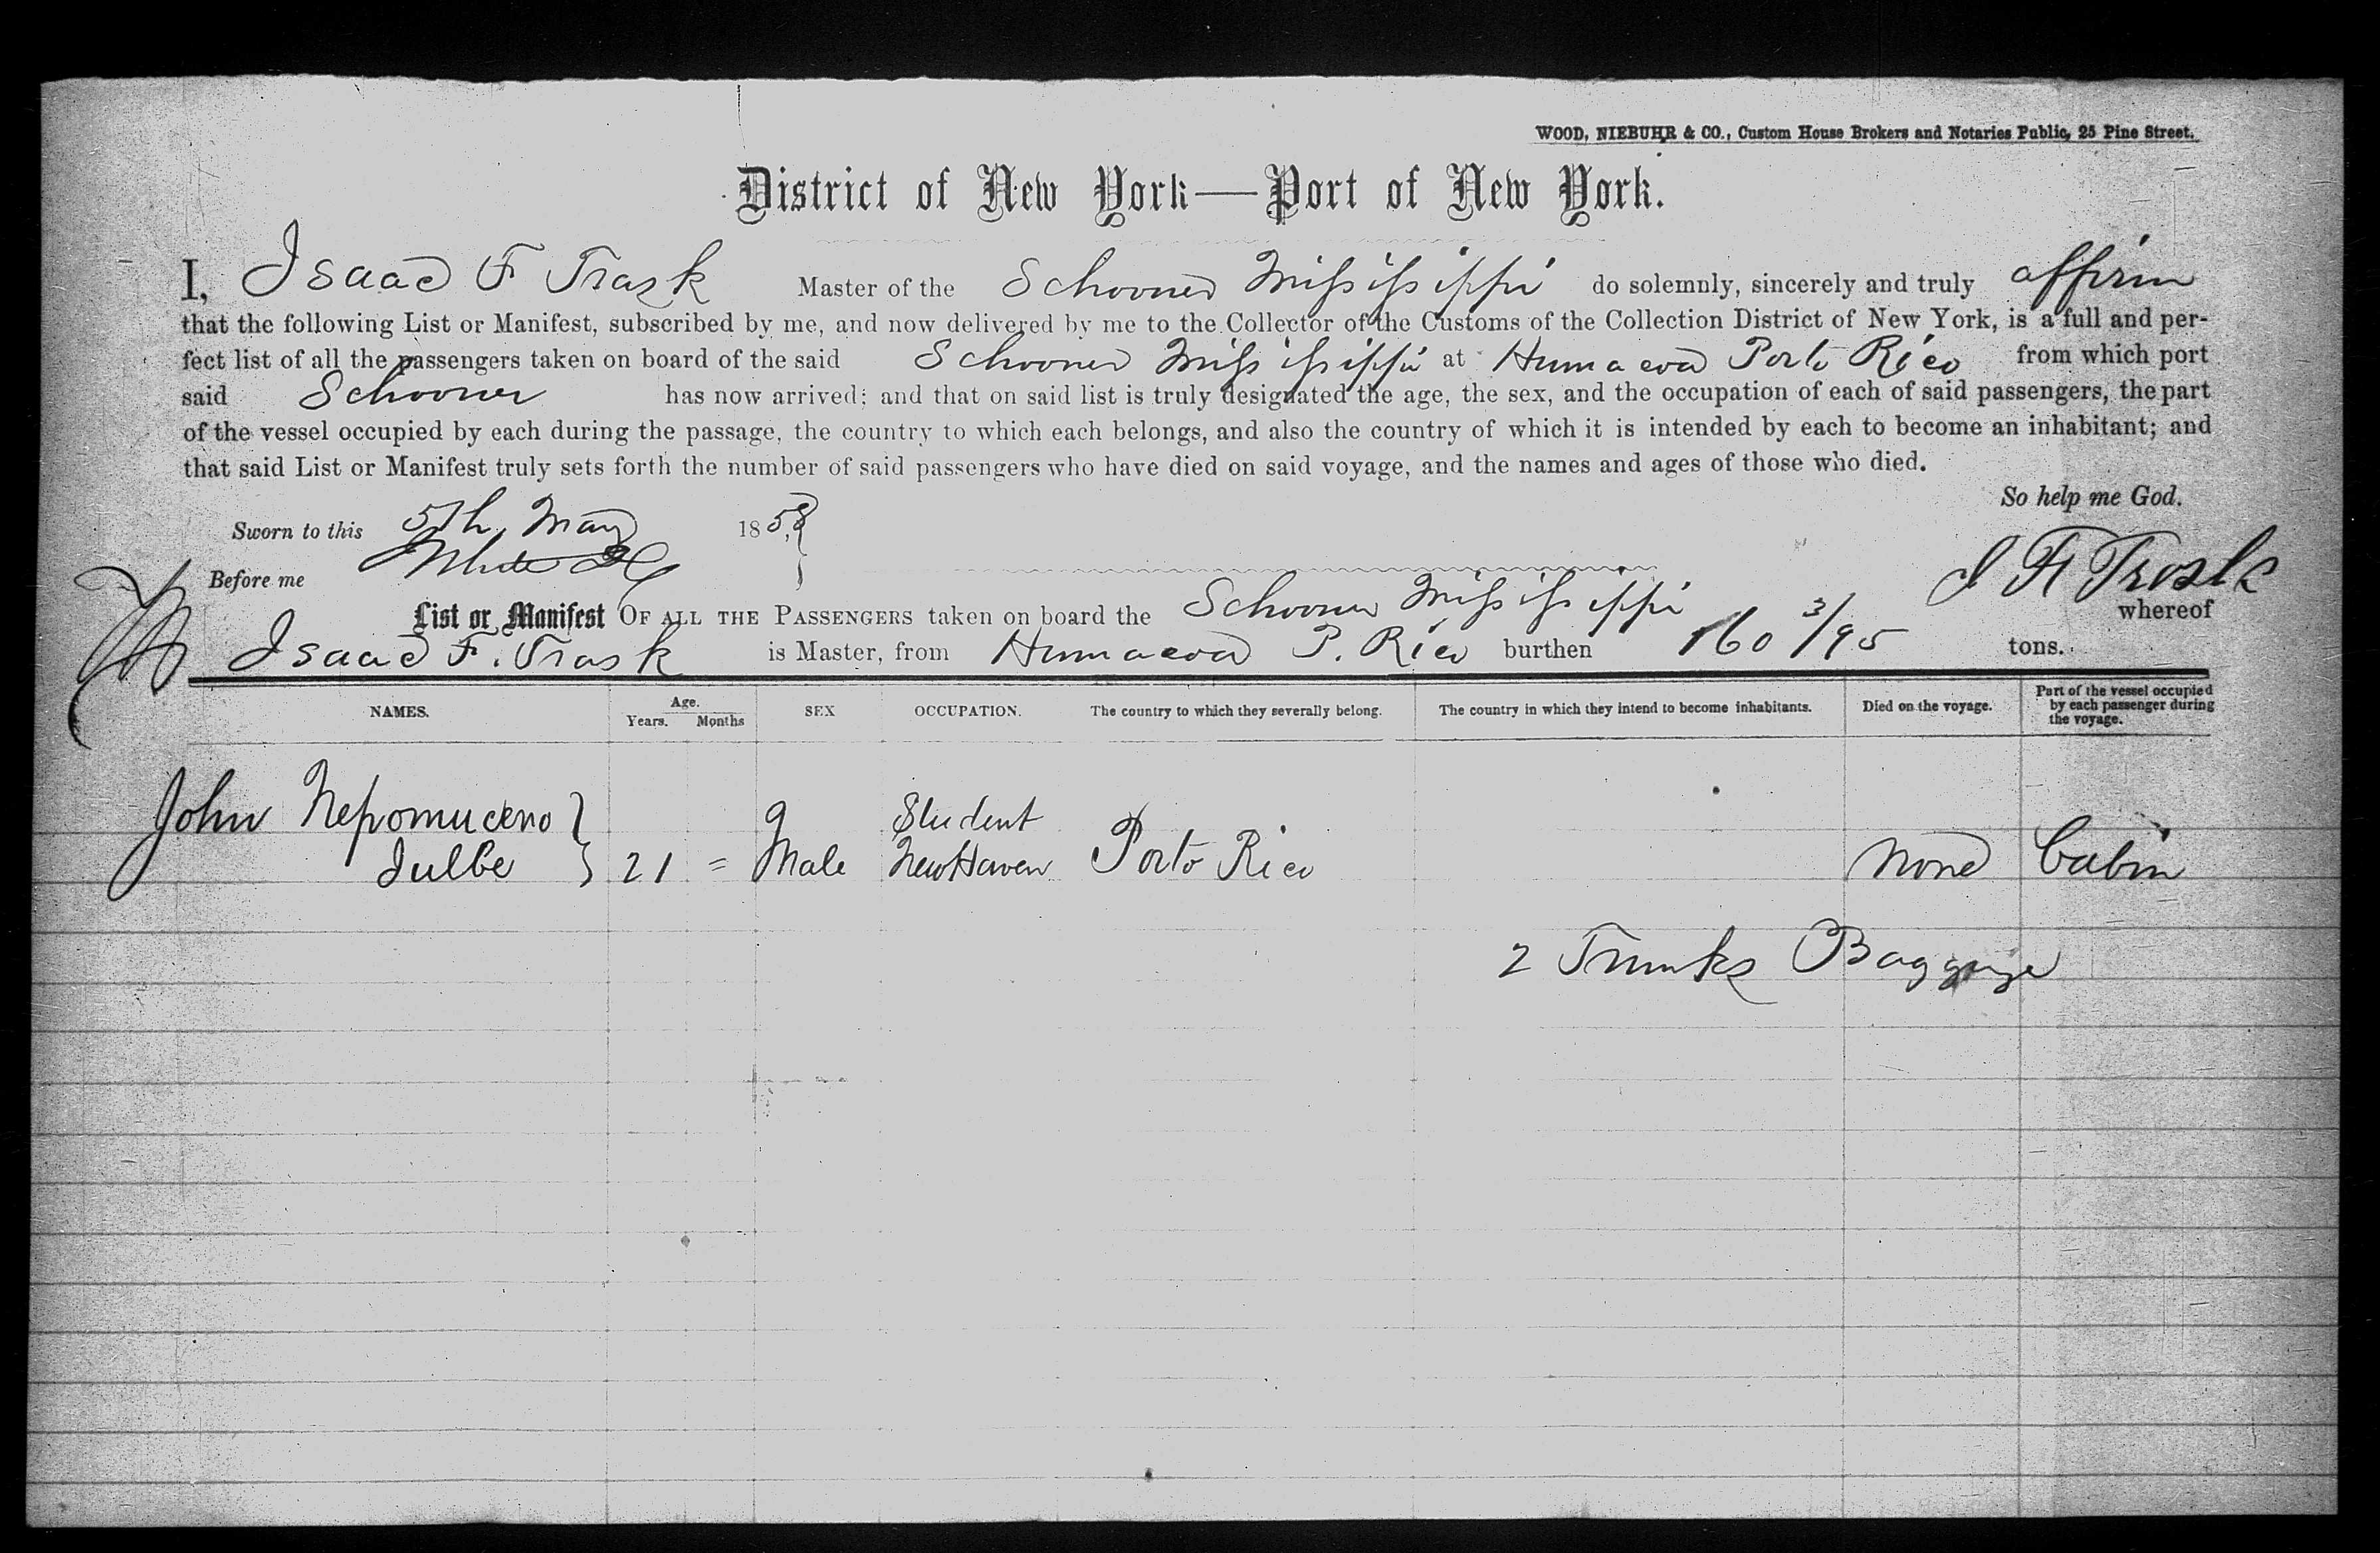 WOOD, NIEBUHR & CO., Custom House Brokers and Notaries Public, 25 Pine Street.
District of New York—Port of New York.
I, Isaac F Trask Master of the Schooner Mississippi do solemnly, sincerely and truly affirm
that the following List or Manifest, subscribed by me, and now delivered by me to the Collector of the Customs of the Collection District of New York, is a full and per-
fect list of all the passengers taken on board of the said Schooner Mississippi at Humacoa Porto Rico from which port
said Schooner has now arrived; and that on said list is truly designated the age, the sex, and the occupation of each of said passengers, the part
of the vessel occupied by each during the passage, the country to which each belongs, and also the country of which it is intended by each to become an inhabitant; and
that said List or Manifest truly sets forth the number of said passengers who have died on said voyage, and the names and ages of those who died.
So help me God.
Sworn to this 5th May 1858
Before me
I F Trask
List or Manifest OF ALL THE PASSENGERS taken on board the Schooner Mississippi whereof
Isaac F. Trask is Master, from Humacoa P. Rico burthen 160 3/95 tons.
NAMES. Age. Years. Months SEX OCCUPATION. The country to which they severally belong. The country in which they intend to become inhabitants. Died on the voyage. Part of the vessel occupied by each passenger during the voyage.
John Nepomuceno Student
Julbe 21 = Male New Haven Porto Rico None Cabin
2 Trunks Baggage